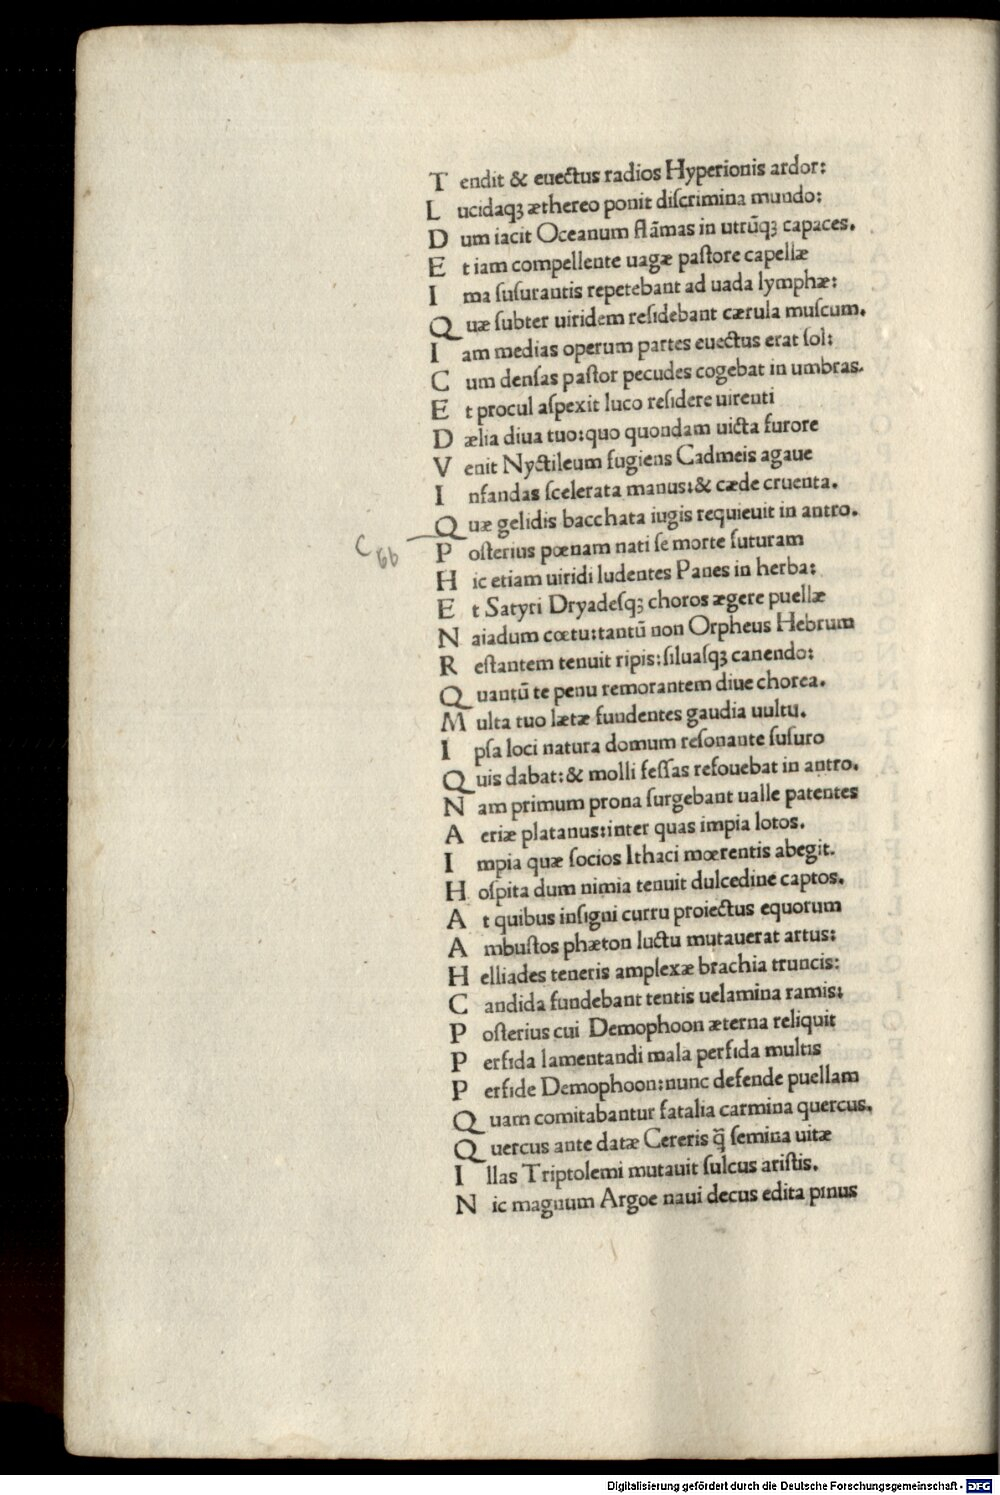 T endit & euectus radios Hyperionis ardor:
L ucidaqꝫ æthereo ponit diſcrimina mundo:
D um iacit Oceanum flāmas in utrūqꝫ capaces.
E t iam compellente uagæ paſtore capellæ
I ma ſuſurantis repetebant ad uada lymphæ:
Q uæ ſubter uiridem reſidebant cærula muſcum.
I am medias operum partes euectus erat ſol:
C um denſas paſtor pecudes cogebat in umbras.
E t procul aſpexit luco reſidere uirenti
D ælia diua tuo:quo quondam uicta furore
V enit Nyctileum fugiens Cadmeis agaue
I nfandas ſcelerata manus:& cæde cruenta.
Q uæ gelidis bacchata iugis requieuit in antro.
C 66
P oſterius pœnam nati ſe morte futuram
H ic etiam uiridi ludentes Panes in herba:
E t Satyri Dryadeſqꝫ choros ægere puellæ
N aiadum cœtu:tantū non Orpheus Hebrum
R eſtantem tenuit ripis:ſiluaſqꝫ canendo:
Q uantū te penu remorantem diue chorea.
M ulta tuo lætæ fundentes gaudia uultu.
I pſa loci natura domum reſonante ſuſuro
Q uis dabat:& molli feſſas refouebat in antro.
N am primum prona ſurgebant ualle patentes
A eriæ platanus:inter quas impia lotos.
I mpia quæ ſocios Ithaci mœrentis abegit.
H oſpita dum nimia tenuit dulcedine captos.
A t quibus inſigni curru proiectus equorum
A mbuſtos phæton luctu mutauerat artus:
H elliades teneris amplexæ brachia truncis:
C andida fundebant tentis uelamina ramis:
P oſterius cui Demophoon æterna reliquit
P erfida lamentandi mala perfida multis
P erfide Demophoon:nunc defende puellam
Q uam comitabantur fatalia carmina quercus.
Q uercus ante datæ Cereris q̃ ſemina uitæ
I llas Triptolemi mutauit ſulcus ariſtis.
N ic magnum Argoe naui decus edita pinus
Digitalisierung gefördert durch die Deutsche Forschungsgemeinschaft - DFG